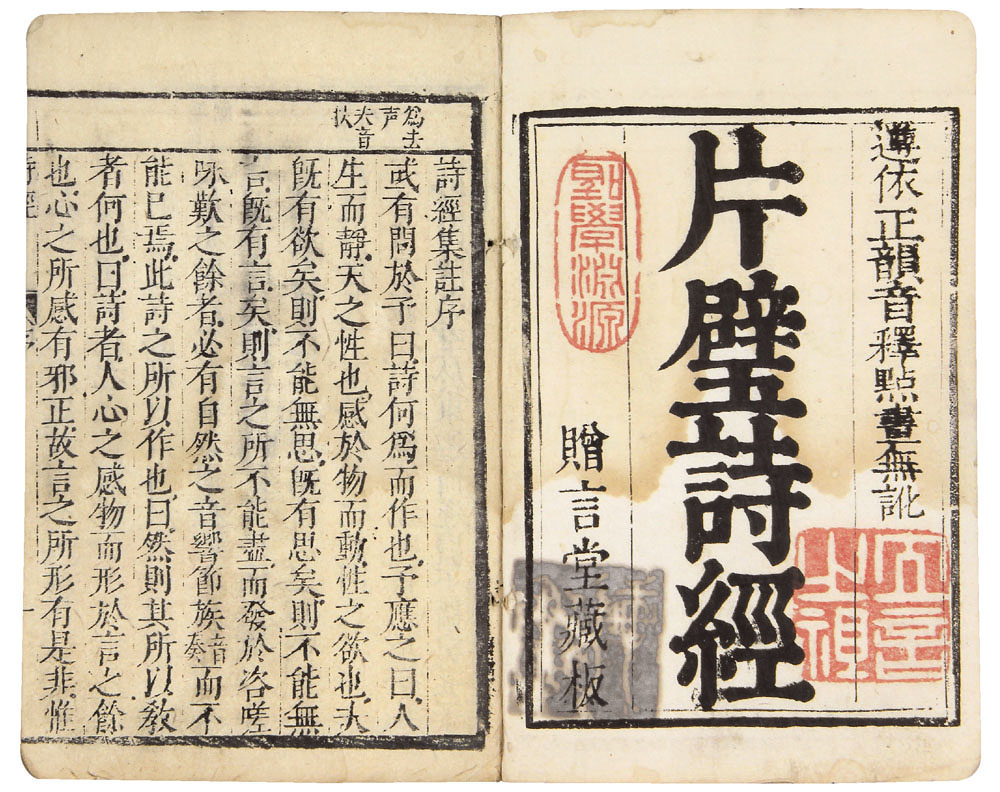 遵依正韻音釋點畫無訛
片璧詩經
聖學淵源
贈言堂藏板
爲去
声
夫音
扶
詩經集註序
或有問於予曰詩何爲而作也予應之曰人
生而靜天之性也感於物而動性之欲也夫
旣有欲矣則不能無思旣有思矣則不能無
言旣有言矣則言之所不能盡而發於咨嗟
咏歎之餘者必有自然之音響節族音奏而不
能已焉此詩之所以作也曰然則其所以敎
者何也曰詩者人心之感物而形於言之餘
也心之所感有邪正故言之所形有是非惟
詩經 序 一